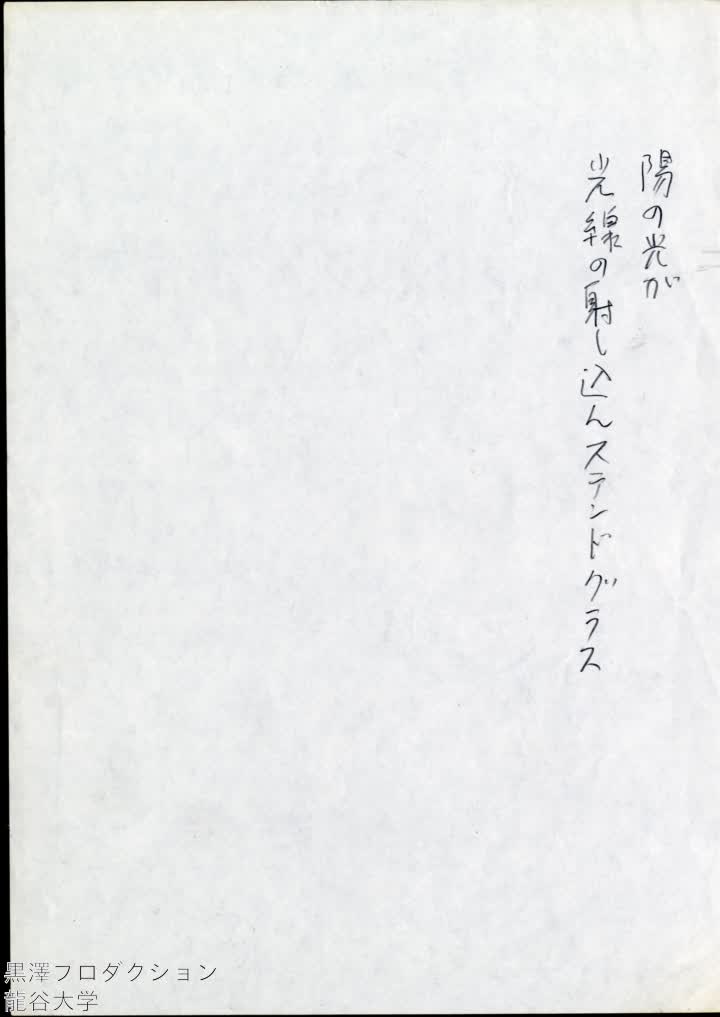 陽の光が
光線の射し込んステンドグラス
黒澤フロダクション
龍谷大学